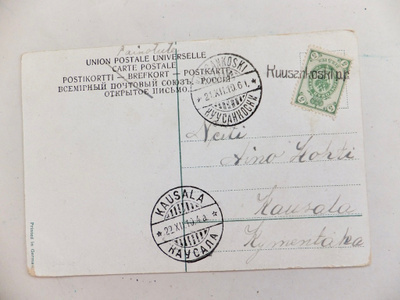 Painotuta
UNION POSTALE UNIVERSELLE
CARTE POSTALE
POSTIKORTTI - BREFKORT - POSTKARTE
ВСЕМІРНЫЙ ПОЧТОВЫЙ СОЮЗЪ, РОССІЯ
ОТКРЫТОЕ ПИСЬМО.
KUUSANKOSKI
21.XII.10.6 i.
КУУСАНКОСКИ
Kuusankoski p.k.
Neiti
Aino Lahti
Kausala
Kymentaka
KAUSALA
22.XII.10.4 a.
КАУСАЛА
Printed in Germany